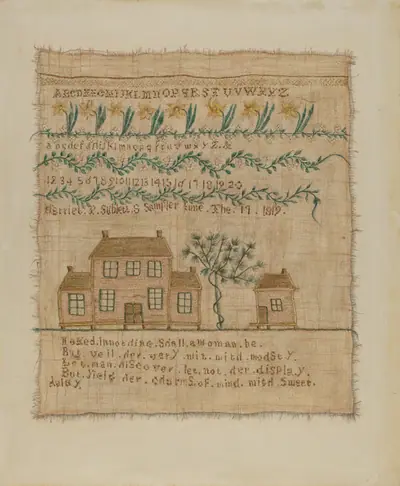 ABCDEFGHIJKLMNOPQRSTUVWXYZ
abcdefghijklmnopqrstuvwxyz.&
1234567891011121314151617181920
Harriet. Sampler June. The. 17. 1819.
Naked.In.nothing.Shall.a.Woman.be.
But.veil.her.very.wit.with.modsty.
Let.man.discover.let.not.her.display.
But.yield.her.charms.of.mind.with.Sweet.
delay.